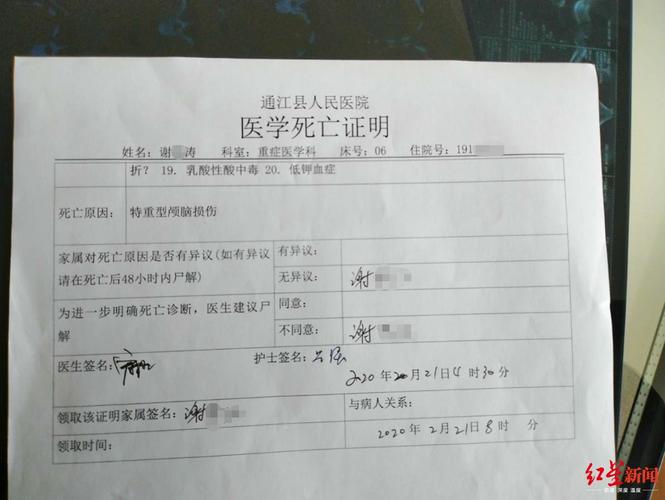 通江县人民医院
医学死亡证明
姓名：谢 涛 科室：重症医学科 床号：06 住院号：191
折？ 19. 乳酸性酸中毒 20. 低钾血症
死亡原因： 特重型颅脑损伤
家属对死亡原因是否有异议(如有异议 有异议：
请在死亡后48小时内尸解) 无异议： 谢
为进一步明确死亡诊断，医生建议尸 同意：
解 不同意： 谢
医生签名： 护士签名：
21日4时30分
领取该证明家属签名：谢 与病人关系：
领取时间： 2020年2月21日8时 分
红星新闻
新闻 深度 温度